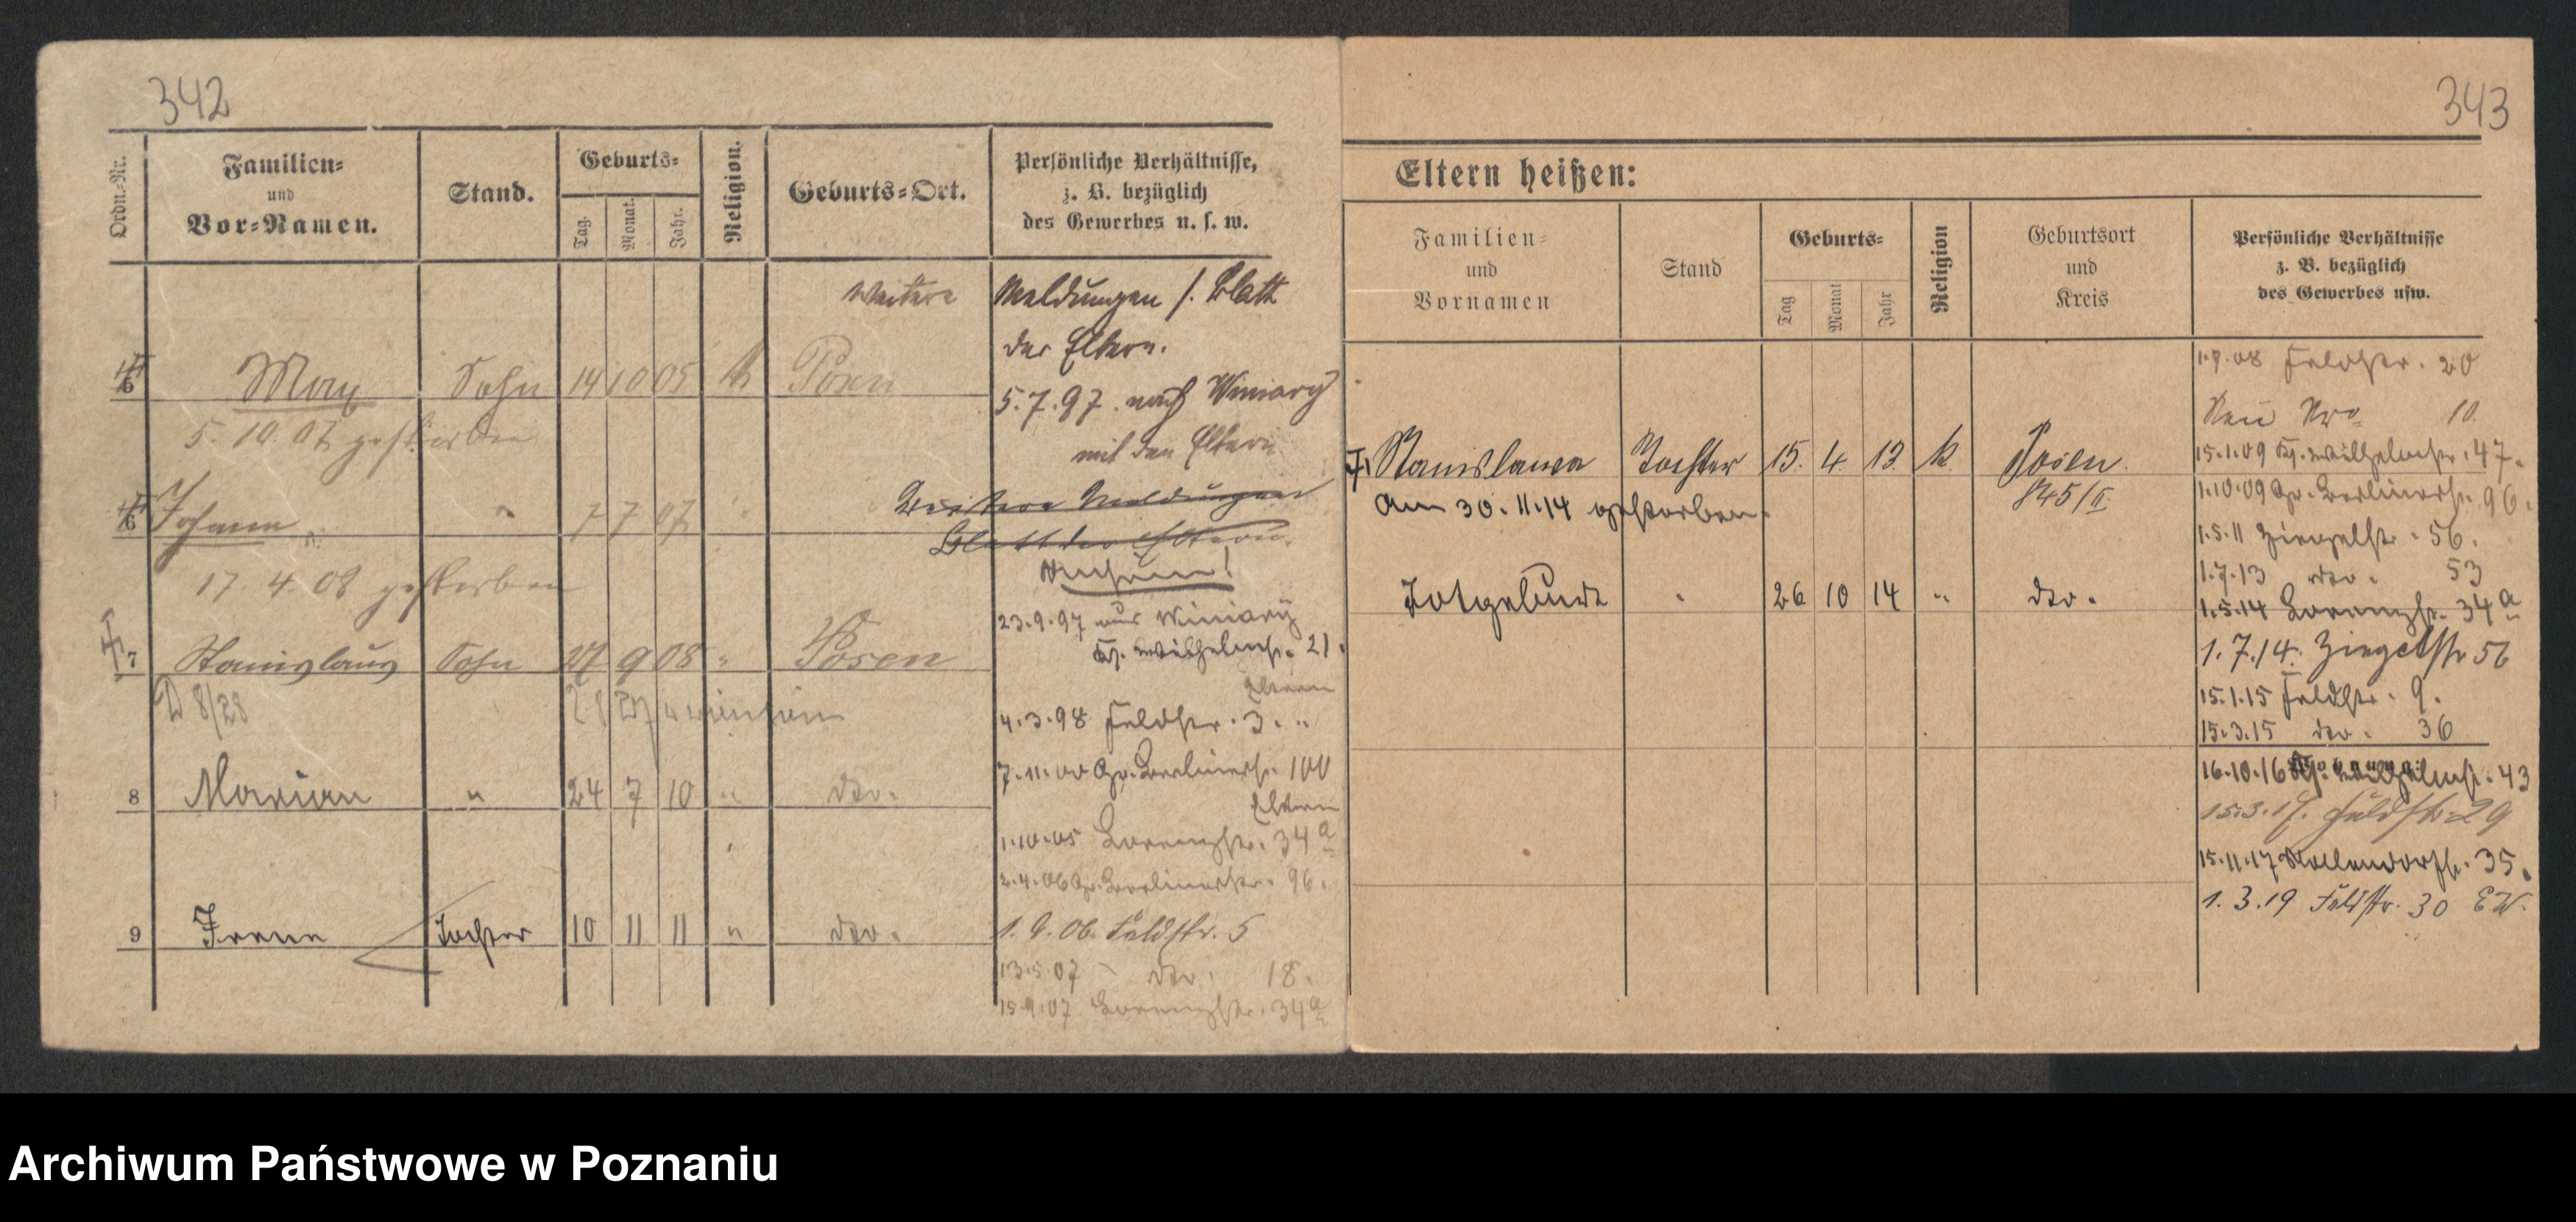 342
Ordn.-Nr.
Familien-
und
Vor-Namen.
Stand.
Geburts-
Tag.
Monat.
Jahr.
Religion.
Geburts-Ort.
Persönliche Verhältnisse,
z. B. bezüglich
des Gewerbes u. s. w.
weitere Meldungen s. Blatt
der Eltern.
Max Sohn 14 10 05 k Posen
5.10.07 gestorben
5.7.97. nach Winiary
mit den Eltern
Johann " 7 7 07 "
17.4.08 gestorben
Weitere Meldungen
Blatt der Eltern.
7 Stanislaus Sohn 27 9 08 " Posen
23.9.97 aus Winiary
Kg. Wilhelmstr. 21.
Eltern
4.3.98 Feldstr. 3. "
8 Marian " 24 7 10 " dto.
7.11.00 Gr. Berlinerstr. 100
Eltern
1.10.05 Lorenzstr. 34a
2.4.06 Gr. Berlinerstr. 96.
9 Irene Tochter 10 11 11 " dto.
1.9.06. Feldstr. 5
13.5.07 dto. 18.
15.9.07 Lorenzstr. 34a
343
Eltern heißen:
Familien-
und
Vornamen
Stand
Geburts-
Tag
Monat
Jahr
Religion
Geburtsort
und
Kreis
Persönliche Verhältnisse
z. B. bezüglich
des Gewerbes usw.
1.9.08 Feldstr. 20
Neu Nro 10.
Stanislawa Tochter 15. 4. 13. k. Posen
845/II
am 30.11.14 gestorben.
15.1.09 Kg. Wilhelmstr. 47.
1.10.09 Gr. Berlinerstr. 96.
1.5.11 Ziegelstr. 56.
1.7.13 dto. 53
Totgeburt " 26 10 14 " dto.
1.5.14 Lorenzstr. 34a
1.7.14. Ziegelstr 56
15.1.15 Feldstr. 9.
15.3.15 dto. 36
16.10.16 Kg. Wilhelmstr. 43
15.3.17. Feldstr 29
15.11.17 Nollendorfstr. 35.
1.3.19 Feldstr. 30 EW.
Archiwum Państwowe w Poznaniu